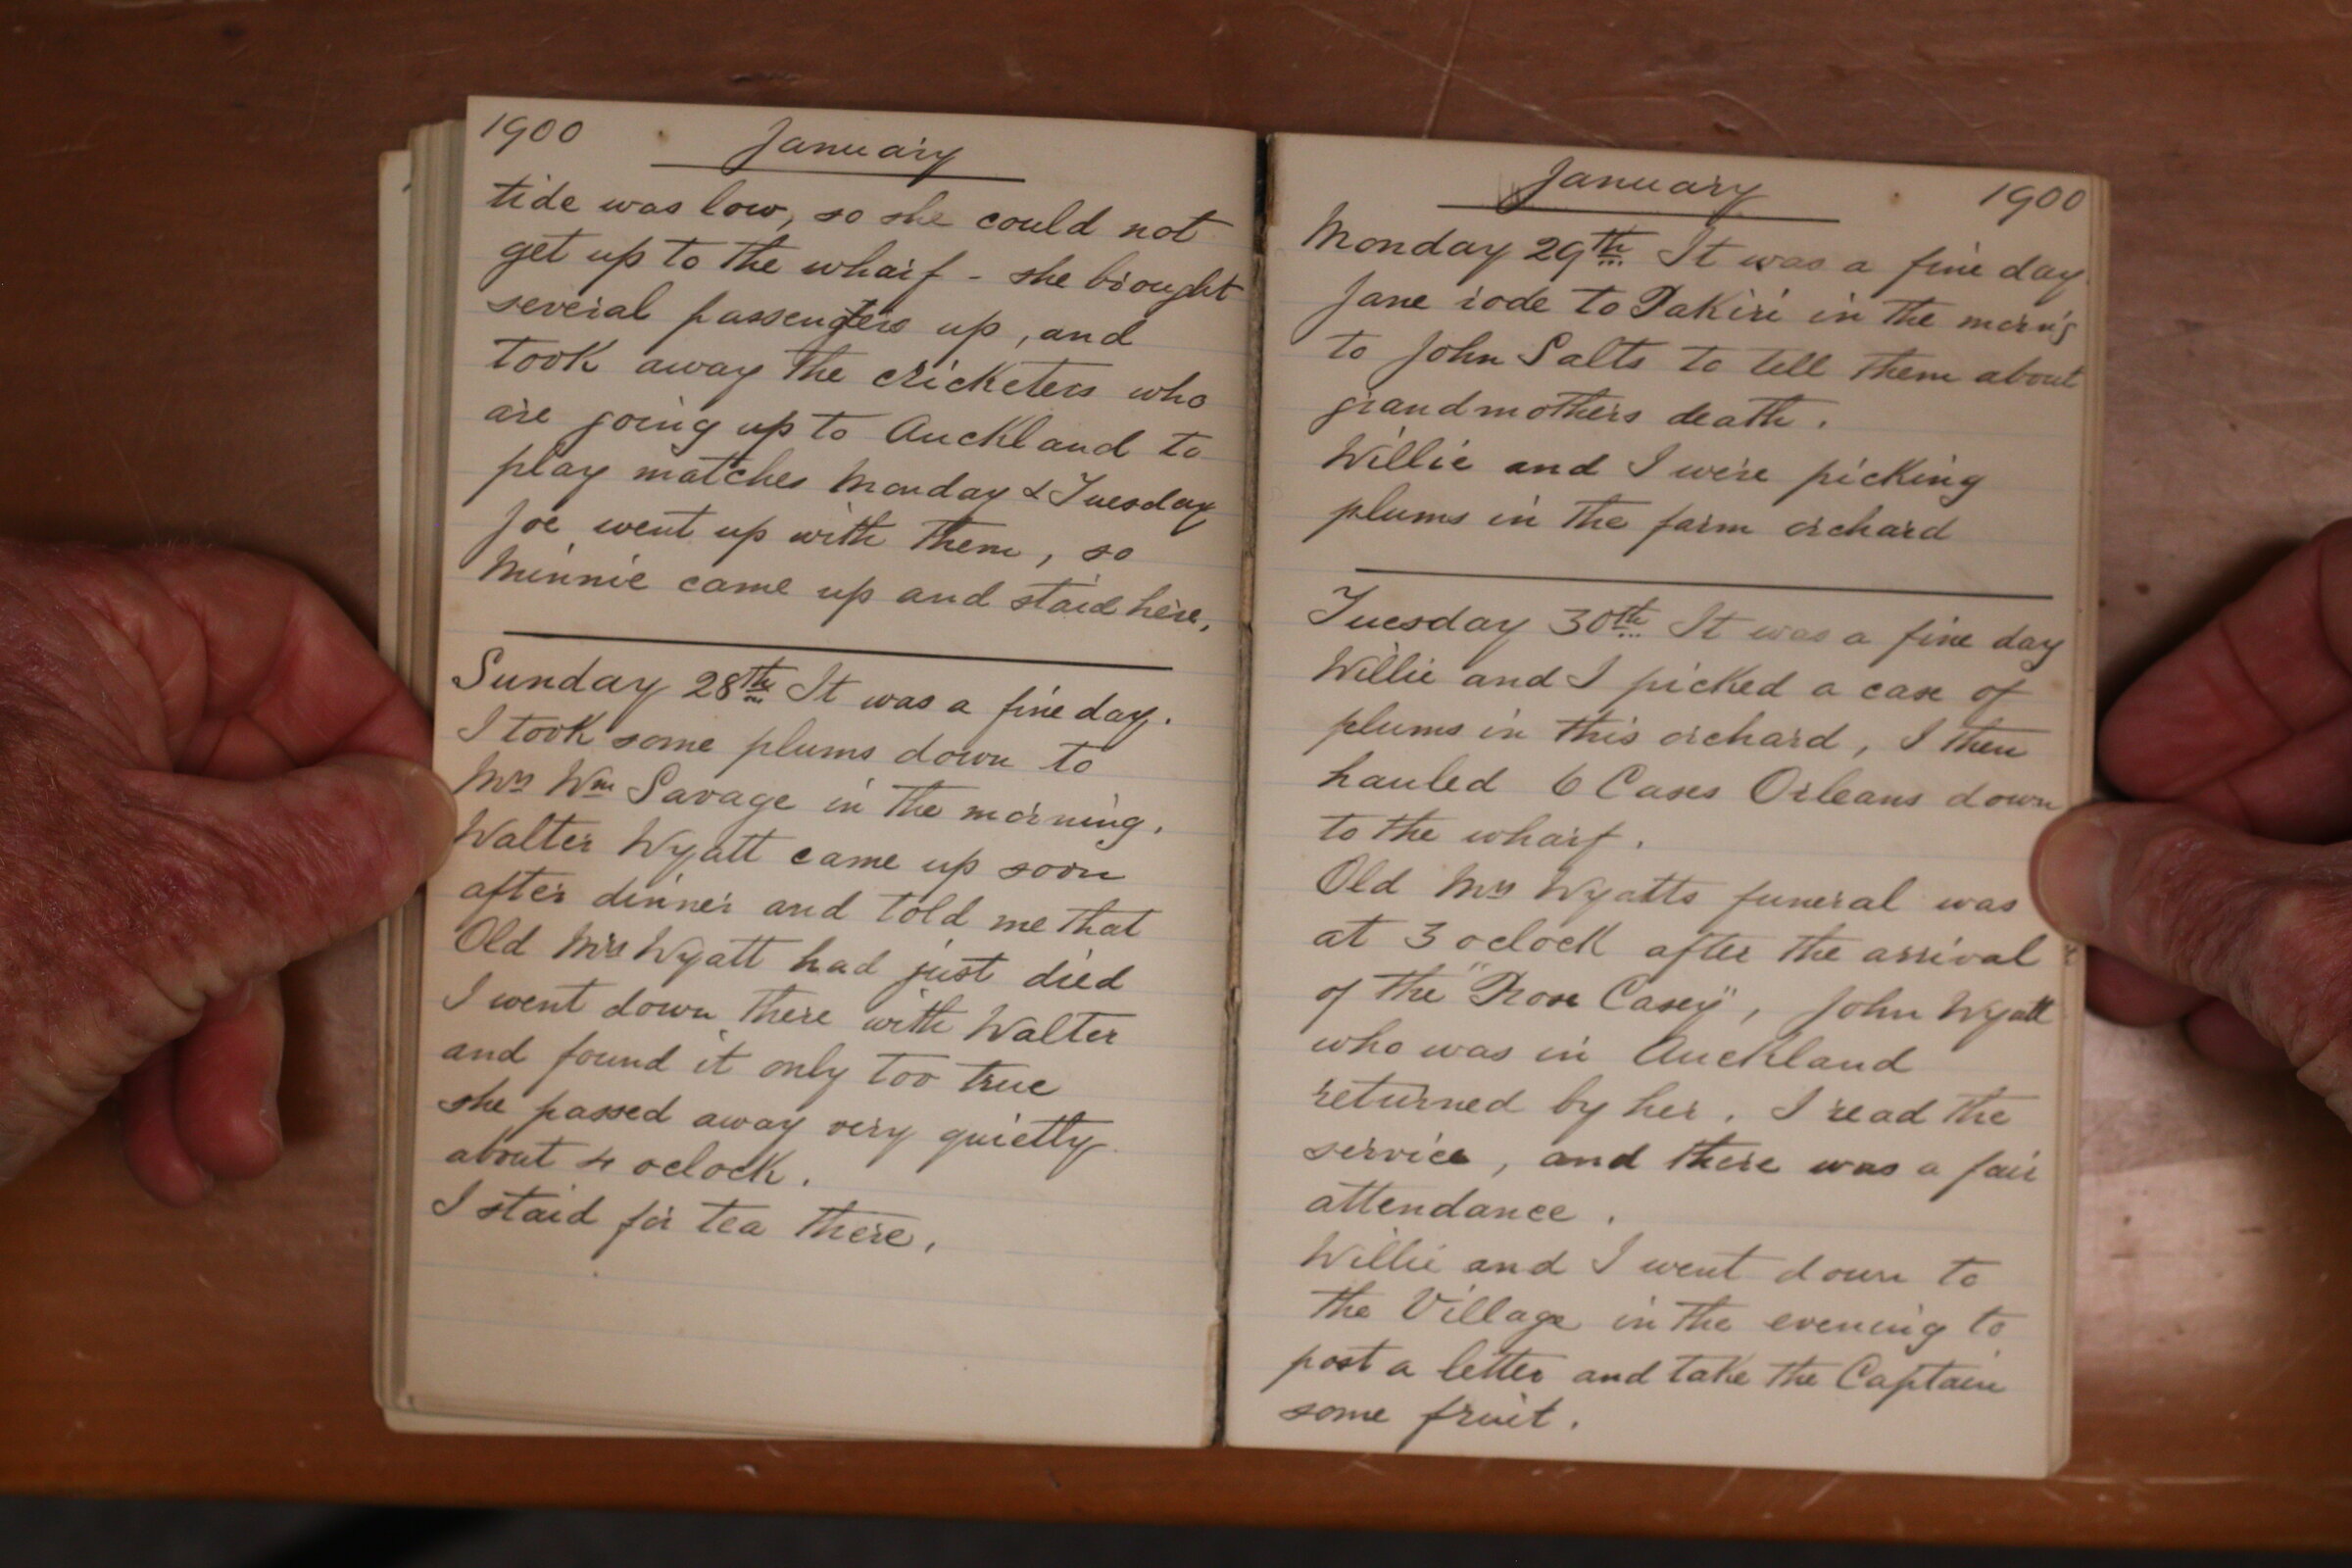 1900 January
tide was low, so she could not
get up to the wharf - she brought
several passengers up, and
took away the cricketers who
are going up to Auckland to
play matches Monday & Tuesday
Joe went up with them, so
Minnie came up and staid here.
Sunday 28th It was a fine day.
I took some plums down to
Mrs Wm Savage in the morning.
Walter Wyatt came up soon
after dinner and told me that
Old Mrs Wyatt had just died
I went down there with Walter
and found it only too true
she passed away very quietly
about 4 oclock.
I staid for tea there.
January 1900
Monday 29th It was a fine day
Jane rode to Pakiri in the morn'g
to John Salts to tell them about
grandmothers death.
Willie and I were picking
plums in the farm orchard
Tuesday 30th It was a fine day
Willie and I picked a case of
plums in this orchard, I then
hauled 6 Cases Orleans down
to the wharf.
Old Mrs Wyatts funeral was
at 3 oclock after the arrival
of the "Rose Casey", John Wyatt
who was in Auckland
returned by her. I read the
service, and there was a fair
attendance.
Willie and I went down to
the Village in the evening to
post a letter and take the Captain
some fruit.